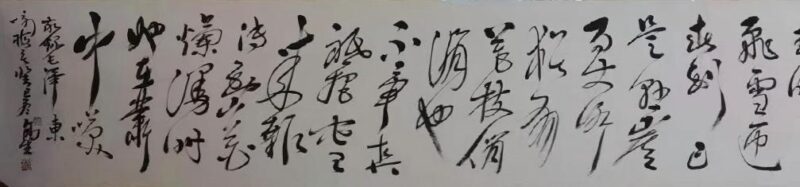 飛雪迎
春到已
是懸崖
百丈冰
猶有
花枝俏
俏也
不爭春
祇把春
來報
待到山花
爛漫時
她在叢
中笑
毛澤東